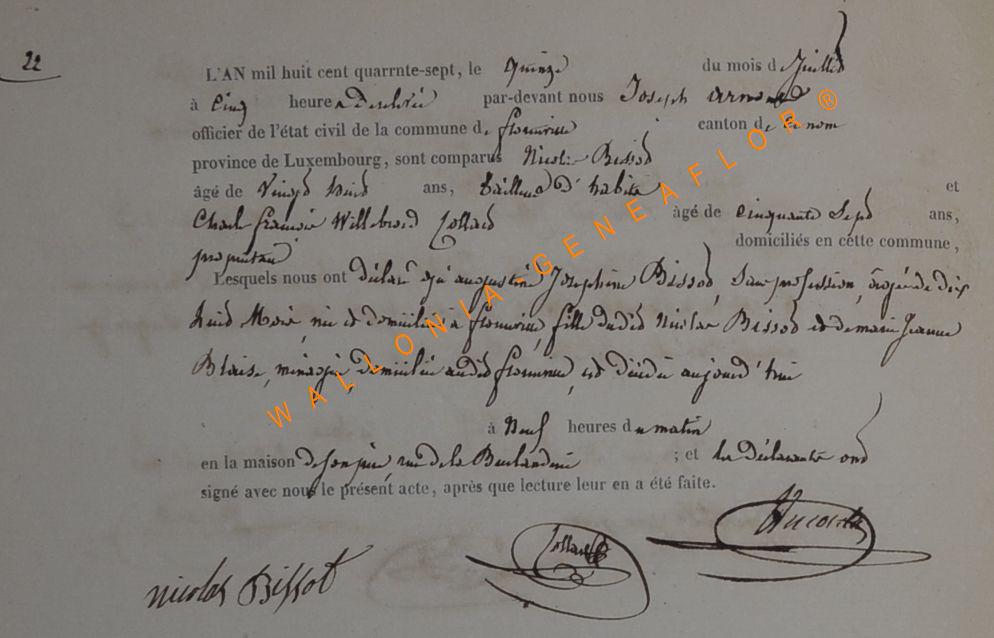 22
L'AN mil huit cent quarrnte-sept, le quinze du mois de Juillet
à Cinq heures de relevée par-devant nous Joseph
officier de l'état civil de la commune de florenville canton de ce nom
province de Luxembourg, sont comparus Nicolas Bissot
âgé de Vingt huit ans, tailleur d'habits et
Charles françois Willebrord Collard àgé de Cinquante Sept ans,
propriétaire domiciliés en cette commune,
Lesquels nous ont déclaré que augustine Josephine Bissot, Sans profession, agée de dix
huit Mois, née et domiciliée à florenville, fille dudit Nicolas Bissot et de marie Jeanne
Blaise, ménagère, domiciliée audit florenville, est décédée aujourd'hui
à Neuf heures du matin
en la maison de son père, rue de la ; et les déclarants ont
signé avec nous le présent acte, après que lecture leur en a été faite.
nicolas Bissot
Collard
WALLONIA-GENEAFLOR®